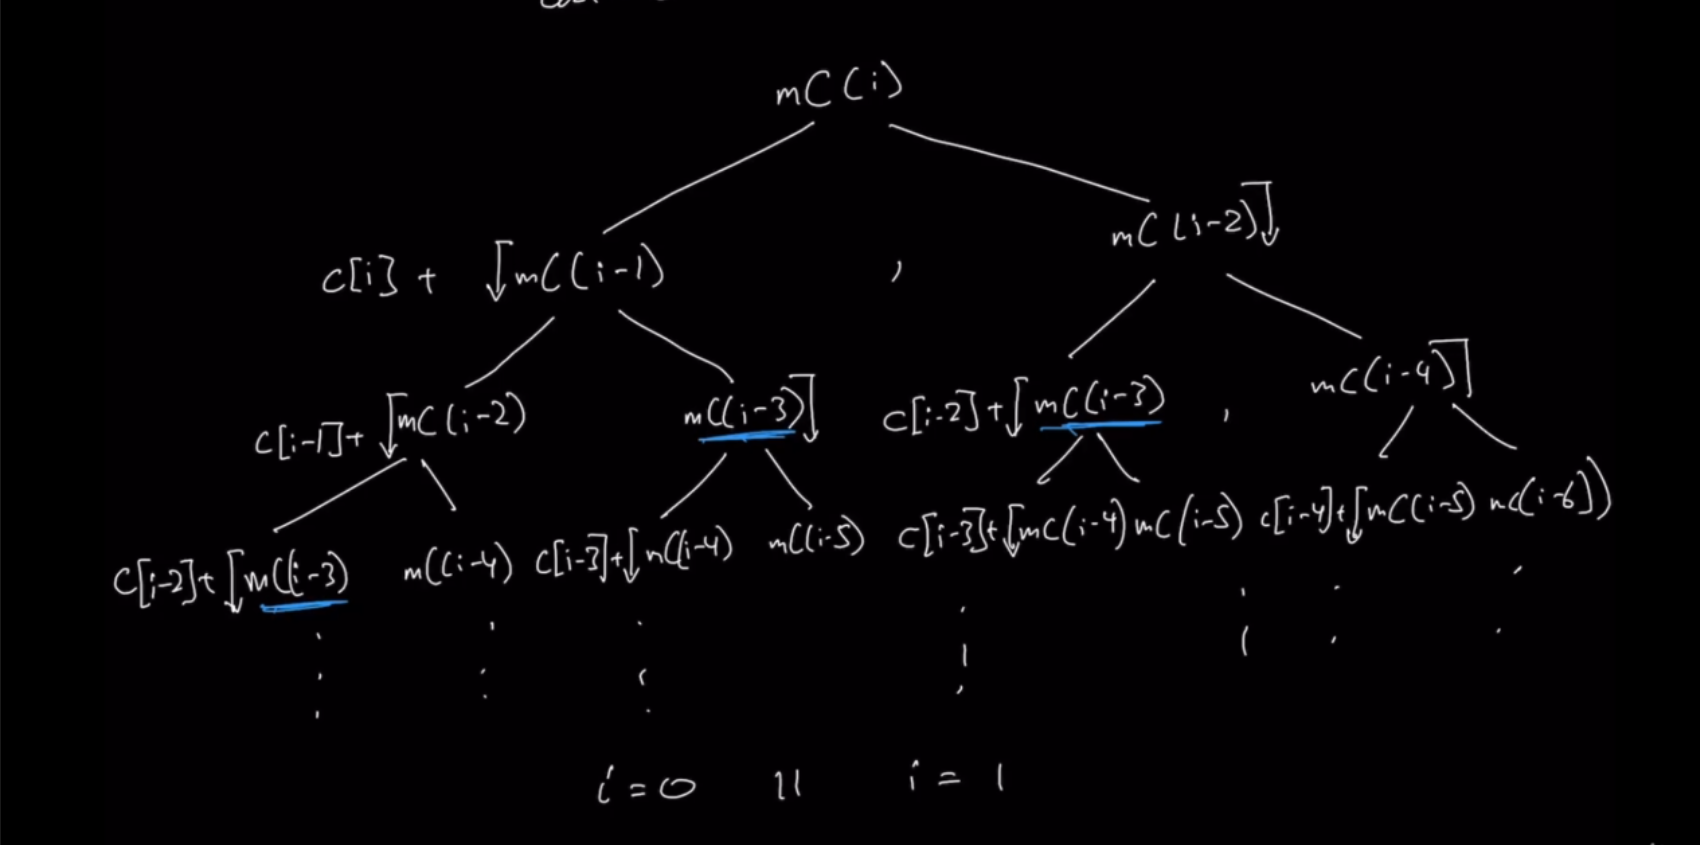 mC(i)
mC(i-2)⌋
c[i] + ⌊mC(i-1) ,
mC(i-4)⌋
c[i-1]+ ⌊mC(i-2) mC(i-3)⌋ c[i-2]+⌊mC(i-3) ,
c[i-2]+⌊mC(i-3) mC(i-4) c[i-3]+⌊mC(i-4) mC(i-5) c[i-3]+⌊mC(i-4) mC(i-5) c[i-4]+⌊mC(i-5) mC(i-6))
i=0 || i = 1